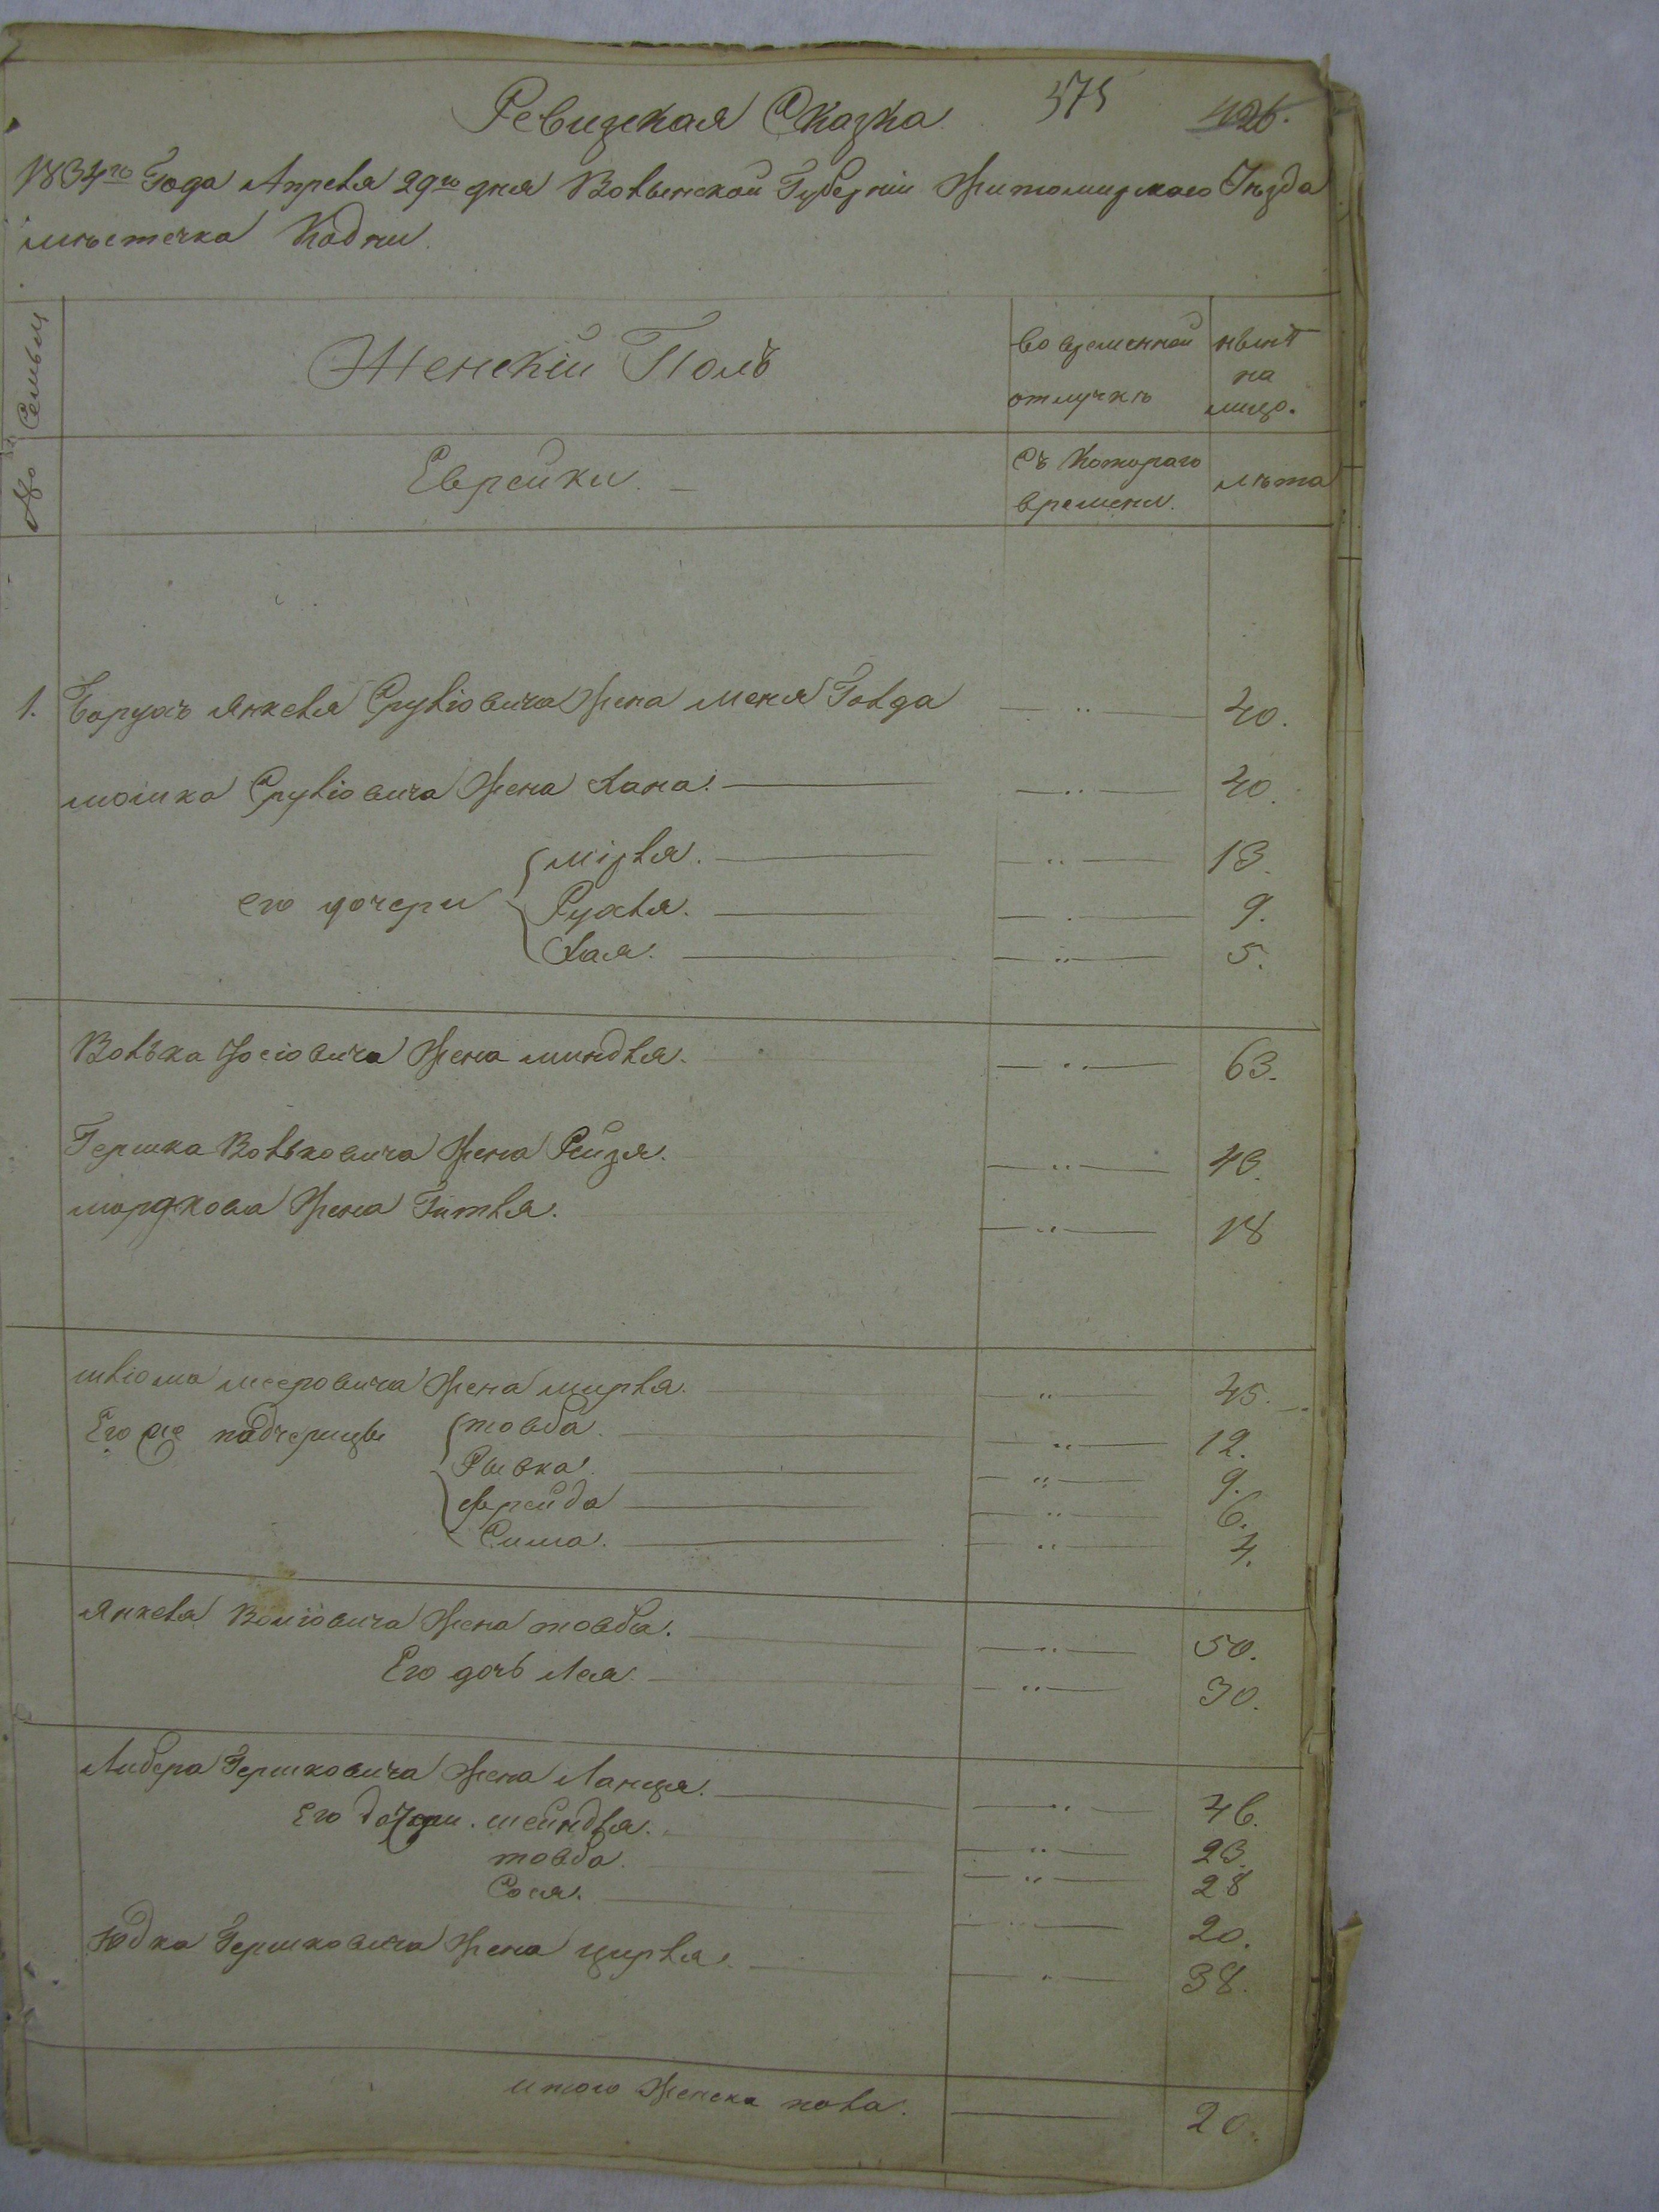 Ревизская Сказка 575 426.
1834го Года Апреля 29го дня Волынской Губерніи Житомирского Уѣзда
мѣстечка Кодни.
№ Семьи
Женскій Полъ
во временной отлучкѣ
нынѣ на лицо.
Еврейки.
Съ Котораго времени.
лѣта
1. Боруха Янкеля Сруліовича Жена Меня Голда 40.
мошка Сруліовича Жена Хана. 40.
его дочери
мірля. 13.
Рухля. 9.
Хая. 5.
Волька Іосіовича Жена миндля. 63.
Гершка Вольковича Жена Рейзя. 43.
мордкова Жена Гитля. 18
шліома мееровича Жена мирля. 45.
Его же падчерицы
товба. 12.
Рывка. 9.
Фрейда 6.
Сима. 4.
Янкеля Воліовича Жена товба. 50.
Его дочь Лея. 30.
Либера Гершковича Жена Ланця. 46.
Его дочери. шейндля. 23.
товба. 28
Сося. 20.
Юдка Гершковича Жена цирля. 38.
итого Женска пола. 20.